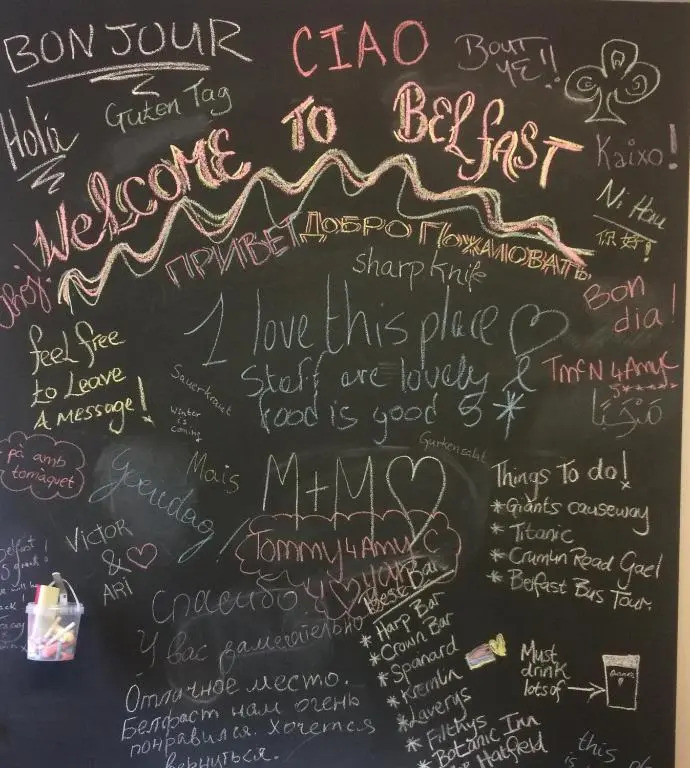 BONJOUR
CIAO
BOUT YE!!
Hola
Guten Tag
WELCOME TO BELFAST
Kaixo!
Ni Hau
你好!
ПРИВЕТ
ДОБРО ПОЖАЛОВАТЬ
sharp knife
Ahoj!
Bon
dia!
I love this place
Staff are lovely &
food is good
feel free
to Leave
A message!
TMcN 4 Amy
Sauerkraut
winter
is
coming
مرحبا
pà amb
tomaquet
Mais
Gurkensalat
M+M
Things To do!
*Giants causeway
*Titanic
*Crumlin Road Gael
*Belfast Bus Tour.
VICTOR
&
ARi
Tommy 4 Amy
Спасибо
У вас замечательно
Отличное место.
Белфаст нам очень
понравился. Хочется
вернуться.
Best Bar
*Harp Bar
*Crown Bar
*Spanard
*Kremlin
*Laverys
*Filthys
*Botanic Inn
Hatfield
Must
drink
lots of
this
is